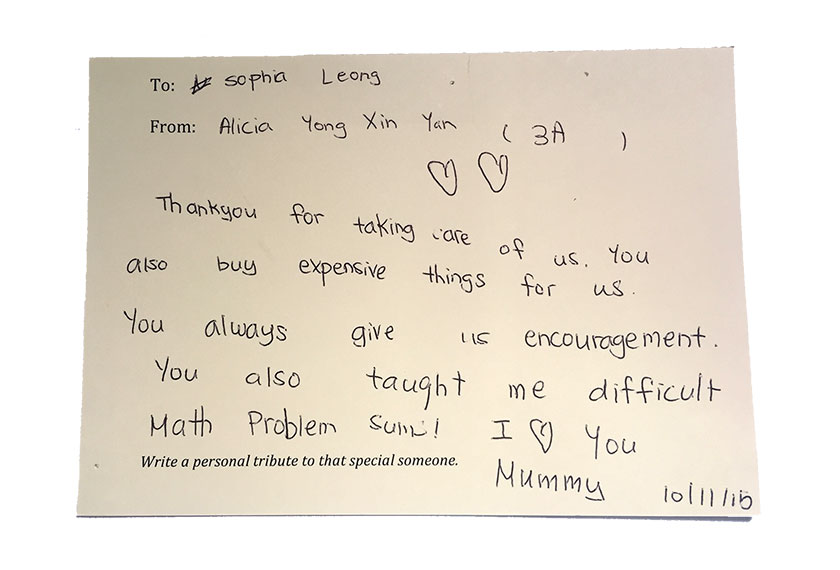 To: Sophia Leong
From: Alicia Yong Xin Yan ( 3A )
Thankyou for taking care of us. You
also buy expensive things for us.
You always give us encouragement.
You also taught me difficult
Math Problem Sums! I ♡ You
Write a personal tribute to that special someone.
Mummy 10/11/15